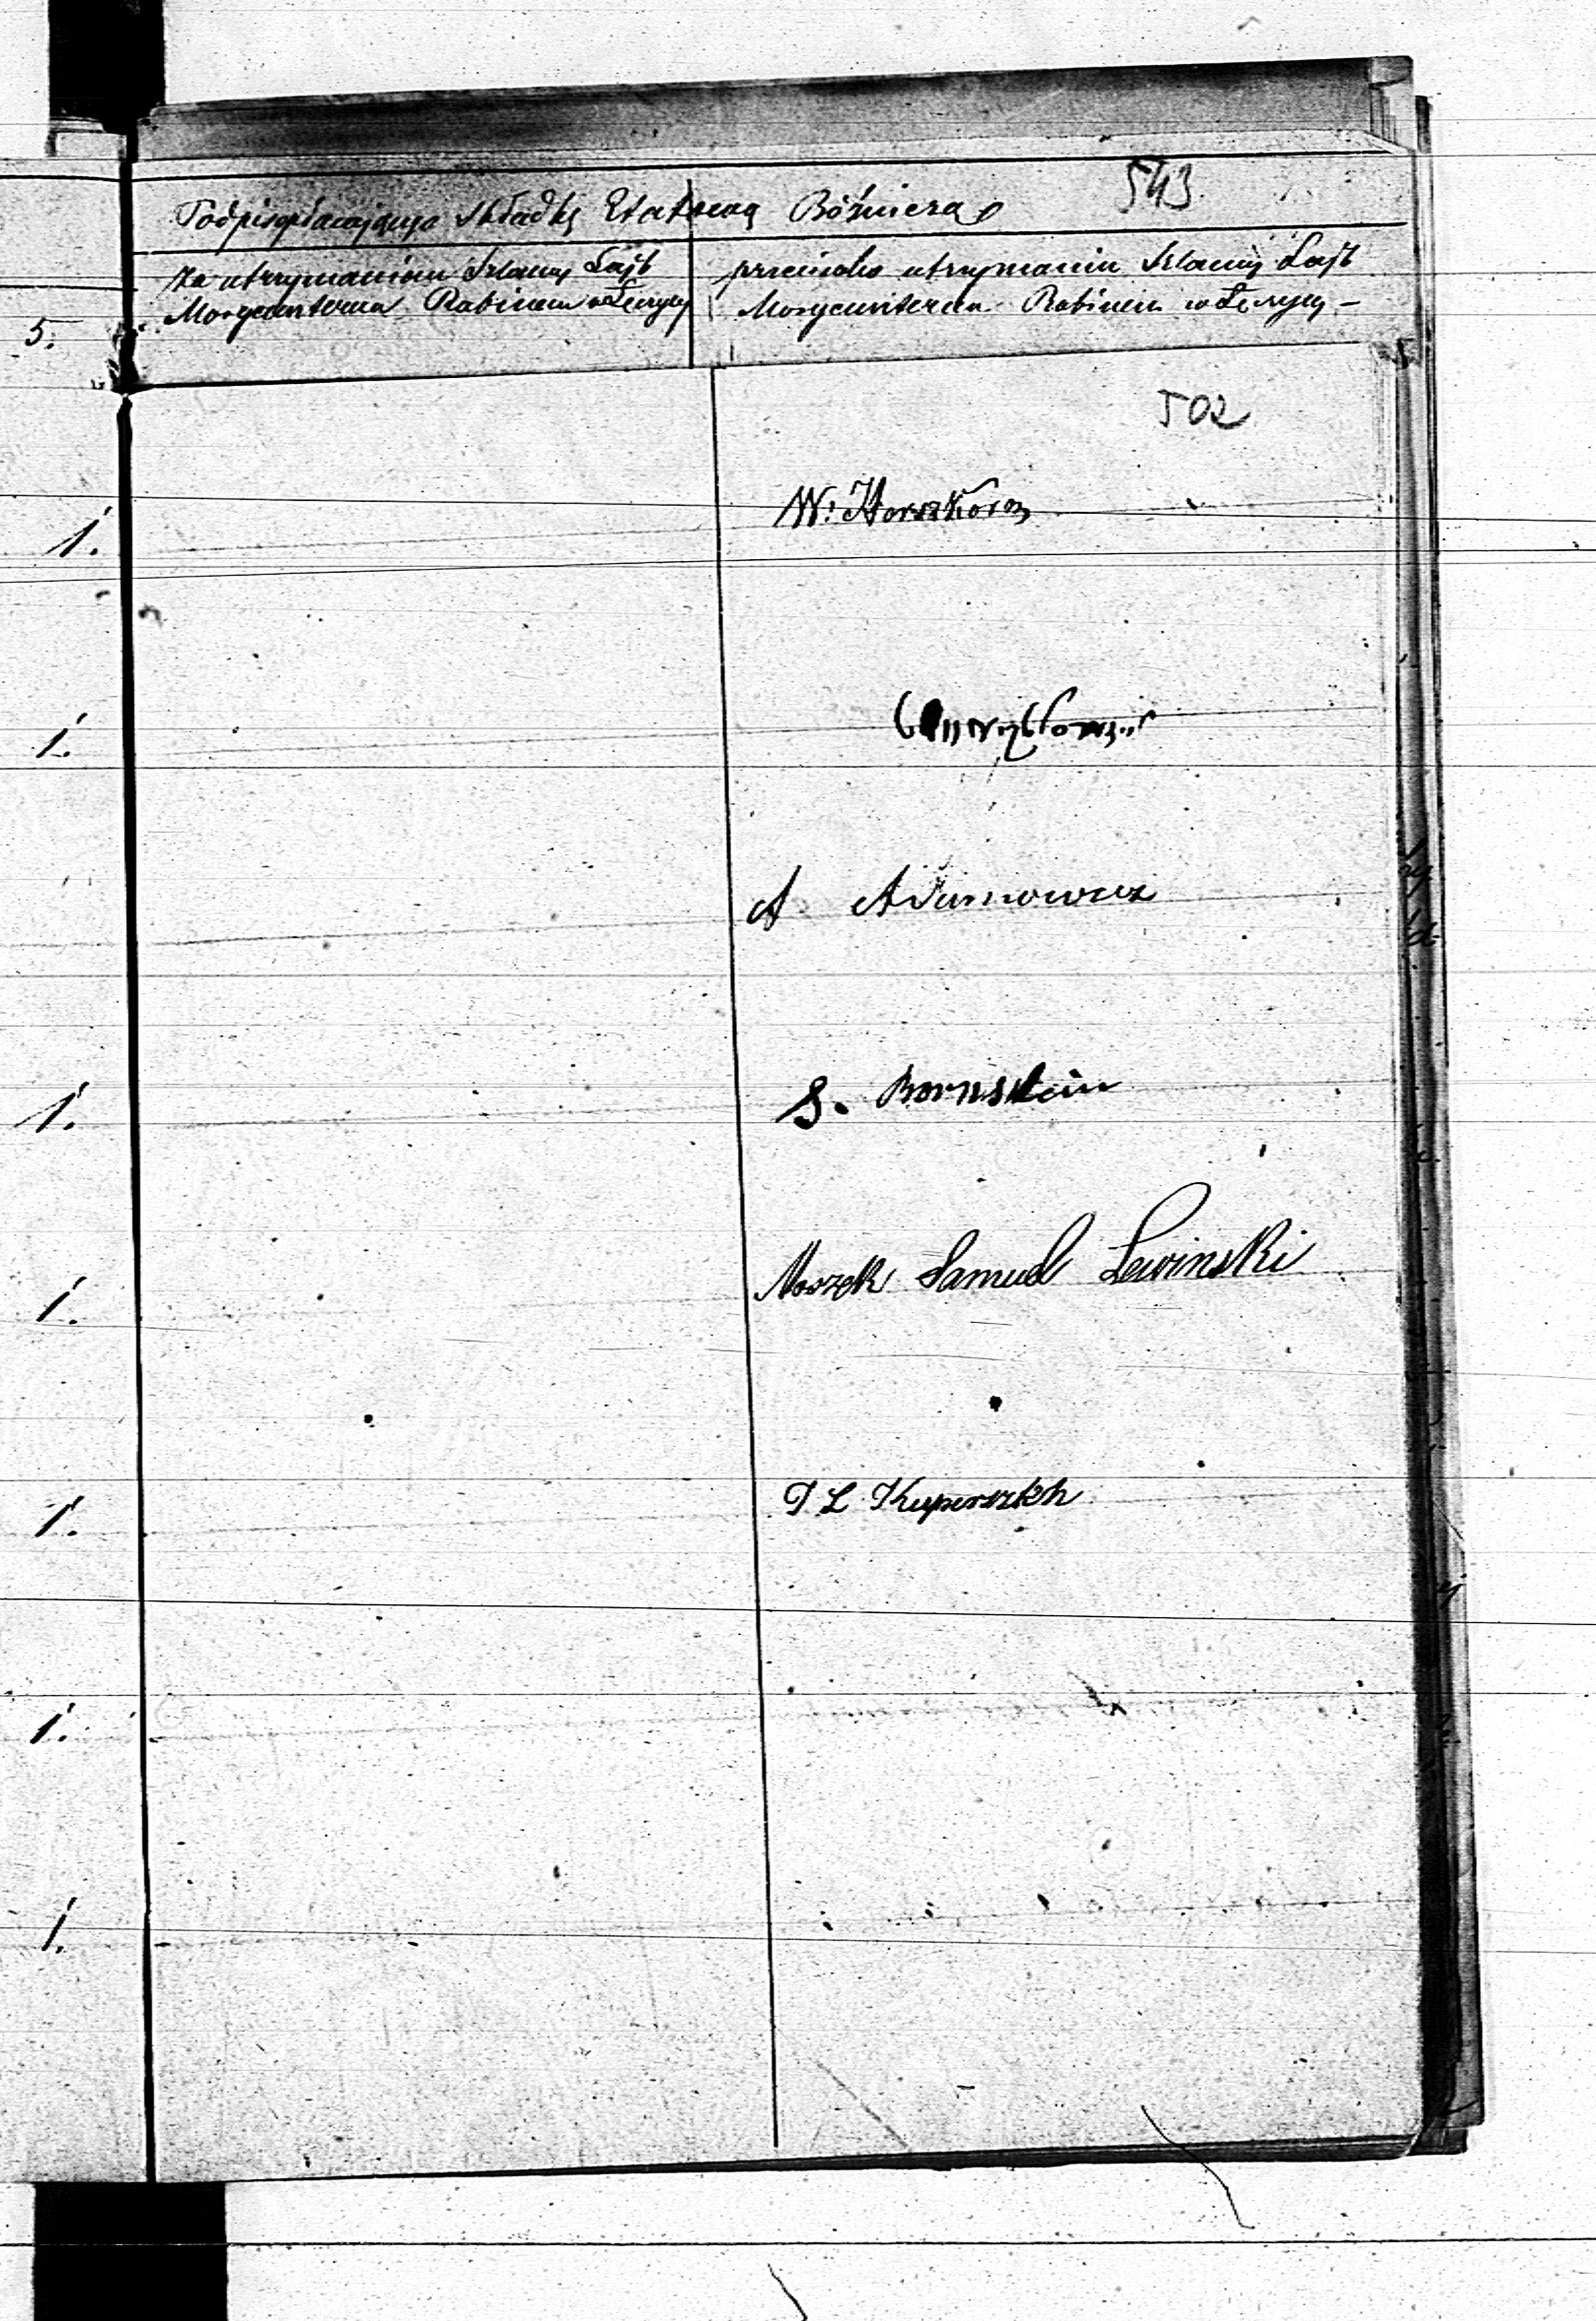 543
Podpis płacającego składkę Etatową Bóźniczą
za utrzymaniem Szlamy Lajb
Morgensterna Rabinem w Łęczycy
przeciwko utrzymaniu Szlamy Lajb
Morgensterna Rabinem w Łęczycy –
5.
502
1.
W:
1.
1.
A Adamowicz
1.
S. Bornstein
1.
Moszek Samuel Lewinski
1.
1.
1.